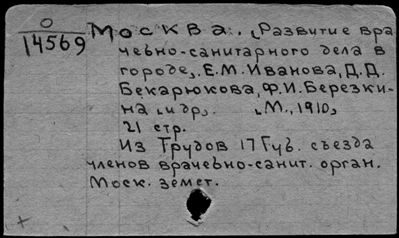 О
14569
Москва. „Развитие вра
чебно-санитарного дела в
городе„. Е.М. Иванова, Д.Д.
Бекарюкова, Ф.И. Березки-
на „и др„. „М., 1910„
21 стр.
Из Трудов 17 Губ. съезда
членов врачебно-санит. орган.
Моск. земст.